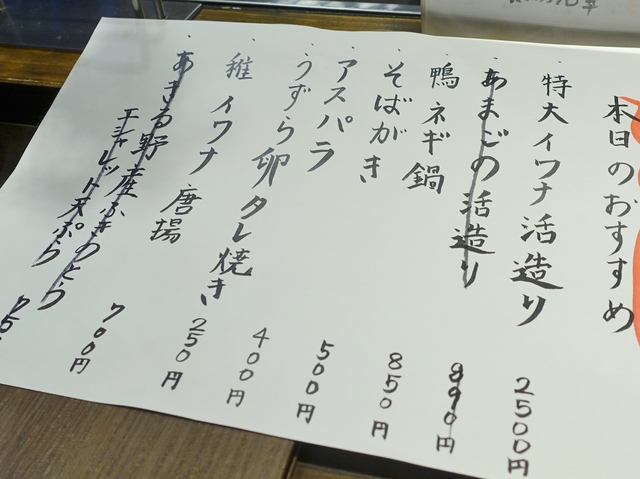 本日のおすすめ
・特大イワナ活造り 2500円
・あまごの活造り 890円
・鴨ネギ鍋 850円
・そばがき 500円
・アスパラ 400円
・うずら卵タレ焼き 250円
・稚イワナ唐揚 700円
・あきる野産ふきのとう
エシャレット天ぷら 75